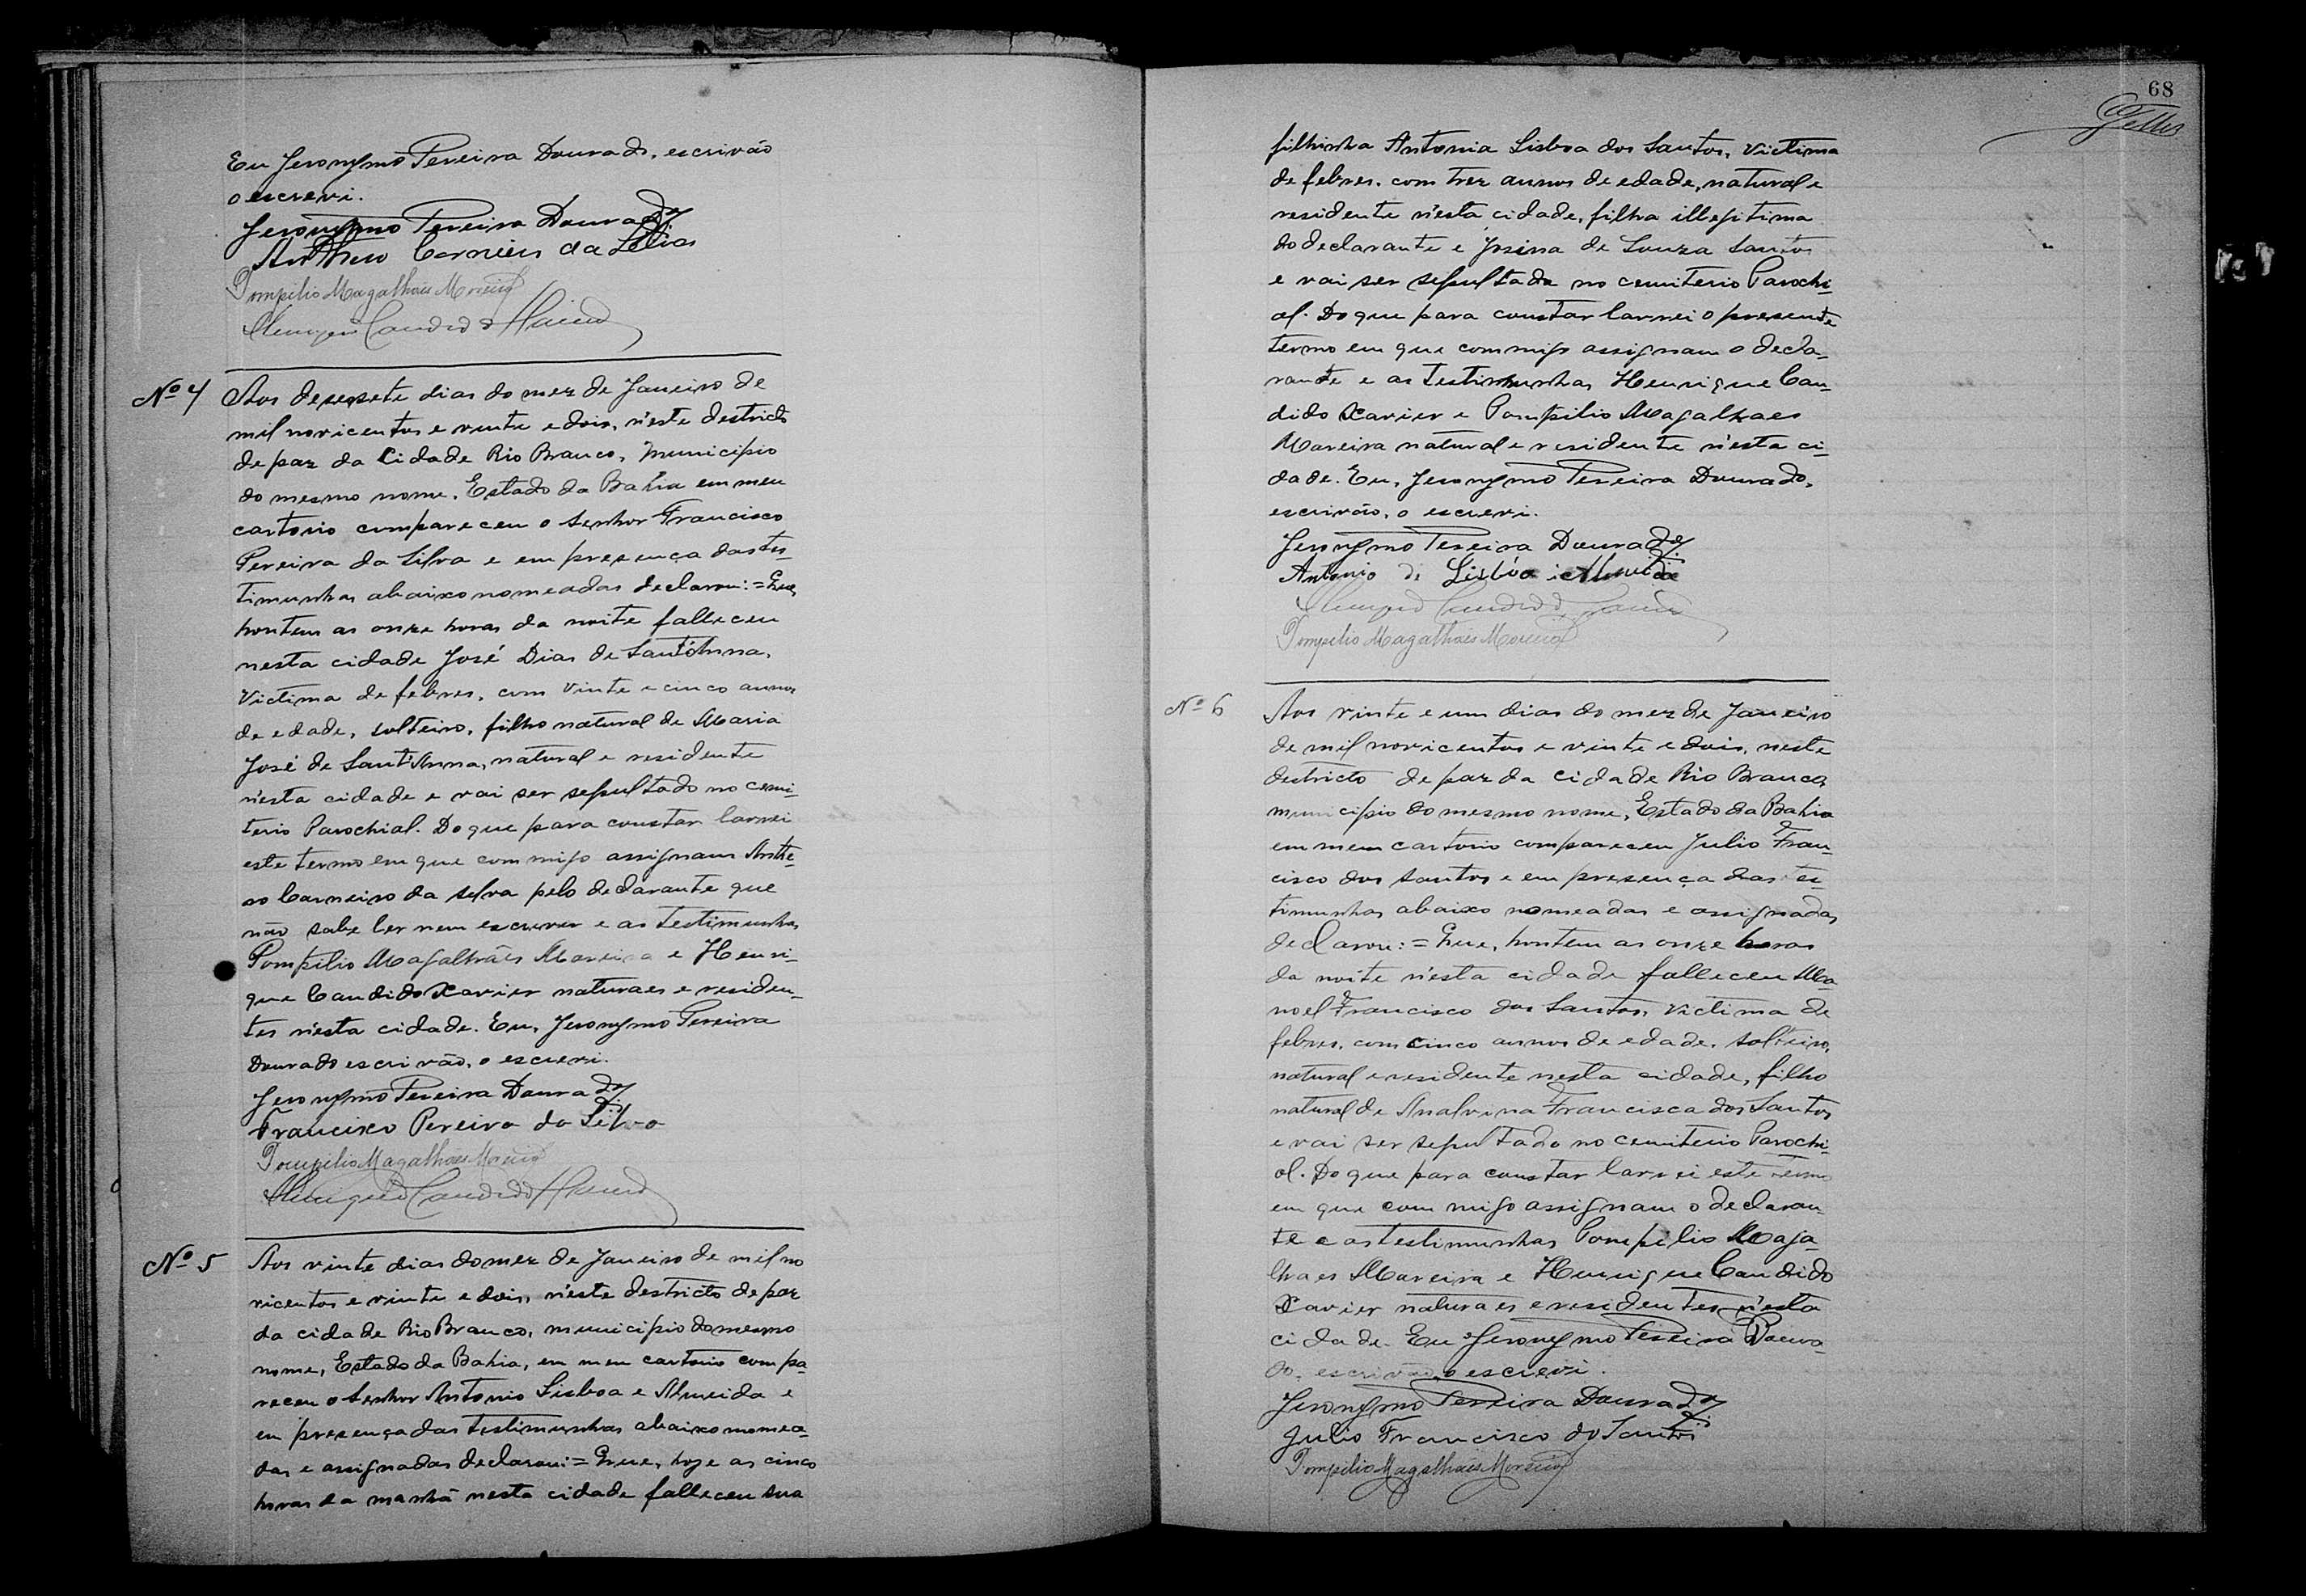 Eu Jeronymo Pereira Dourado, escrivão
o escrevi.
Jeronymo Pereira Dourado
Anthero Carneiro da Silva
Pompilio Magalhães Moreira
Henrique Candido Xavier
Nº 4
Aos desesete dias do mez de Janeiro de
mil novicentos e vinte e dois, n'este destricto
de paz da Cidade Rio Branco, Municipio
do mesmo nome, Estado da Bahia em meu
cartorio compareceu o Senhor Francisco
Pereira da Silva e em presença das tes-
timunhas abaixo nomeadas declarou: = Que,
hontem as onze horas da noite falleceu
nesta cidade José Dias de Sant'Anna,
Victima de febres, com vinte e cinco annos
de edade, solteiro, filho natural de Maria
José de Sant'Anna, natural e residente
n'esta cidade e vai ser sepultado no cemi-
terio Parochial. Do que para constar lavrei
este termo em que commigo assignam Anthe-
ro Carneiro da Silva pelo declarante que
não sabe ler nem escrever e as testimunhas
Pompilio Magalhães Moreira e Henri-
que Candido Xavier naturaes e residen-
tes n'esta cidade. Eu, Jeronymo Pereira
Dourado escrivão, o escrevi.
Jeronymo Pereira Dourado
Francisco Pereira da Silva
Pompilio Magalhães Moreira
Henrique Candido Xavier
Nº 5
Aos vinte dias do mez de Janeiro de mil no
vicentos e vinte e dois, n'este destricto de paz
da cidade Rio Branco, municipio do mesmo
nome, Estado da Bahia, em meu cartorio compa-
receu o Senhor Antonio Lisboa e Almeida e
em presença das testimunhas abaixo nomea-
das e assignadas declarou: = Que, hoje as cinco
horas da manhã nesta cidade falleceu sua
68
Telles
filhinha Antonia Lisboa dos Santos, Victima
de febres, com trez annos de edade, natural e
residente n'esta cidade, filha illegitima
do declarante e Josina de Souza Santos
e vai ser sepultada no cemiterio Parochi-
al. Do que para constar lavrei o presente
termo em que commigo assignam o decla-
rante e as testimunhas Henrique Can-
dido Xavier e Pompilio Magalhaes
Moreira natural e residente n'esta ci-
dade. Eu, Jeronymo Pereira Dourado,
escrivão, o escrevi.
Jeronymo Pereira Dourado
Antonio de Lisbôa e Almeida
Henrique Candido Xavier
Pompilio Magalhães Moreira
Nº 6
Aos vinte e um dias do mez de Janeiro
de mil novicentos e vinte e dois, neste
destricto de paz da cidade Rio Branco,
municipio do mesmo nome, Estado da Bahia
em meu cartorio compareceu Julio Fran-
cisco dos Santos e em presença das tes-
timunhas abaixo nomeadas e assignadas
declarou: = Que, hontem as onze horas
da noite n'esta cidade falleceu Ma-
noel Francisco dos Santos, Victima de
febres, com cinco annos de edade, solteiro,
natural e residente nesta cidade, filho
natural de Analvina Francisca dos Santos
e vai ser sepultado no cemiterio Parochi-
al. Do que para constar lavrei este termo
em que commigo assignam o declaran-
te e as testimunhas Pompilio Maga-
lhaes Moreira e Henrique Candido
Xavier naturaes e residentes n'esta
cidade. Eu Jeronymo Pereira Doura-
do, escrivão, o escrevi.
Jeronymo Pereira Dourado
Julio Francisco do Santos
Pompilio Magalhães Moreira